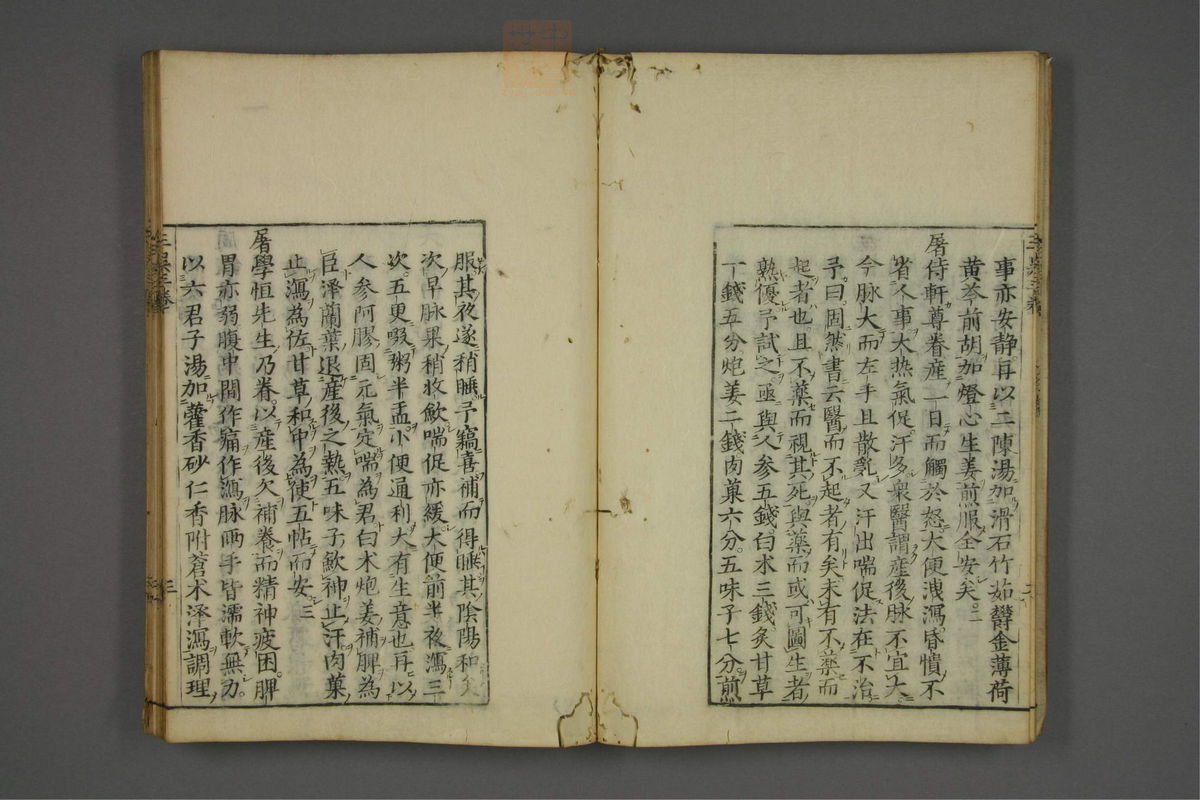 事亦安静再以二陳湯加滑石竹茹欝金薄荷
黄芩前胡加燈心生姜煎服全安矣二
屠侍軒尊眷産一日而觸於怒大便洩瀉昏憒不
省人事大热氣促汗多衆醫謂産後脉不宜大
今脉大而左手且散亂又汗出喘促法在不治
予曰固然書云醫而不起者有矣未有不藥而
起者也且不藥而視其死與藥而或可圖生者
熟優予試之亟與人参五錢白术三錢炙甘草
一錢五分炮姜二錢肉菓六分五味子七分煎
服其夜遂稍睡予竊喜補而得睡其陰陽和矣
次早脉果稍收歛喘促亦緩大便前半夜瀉三
次五更啜粥半盂小便通利大有生意也再以
人参阿膠固元氣定喘為君白术炮姜補脾為
臣泽蘭葉退産後之熱五味子歛神止汗肉菓
止瀉為佐甘草和中為使五帖而安三
屠學恒先生乃眷以産後欠補養而精神疲困脾
胃亦弱腹中間作痛作瀉脉両手皆濡軟無力
以六君子湯加藿香砂仁香附蒼术泽瀉調理